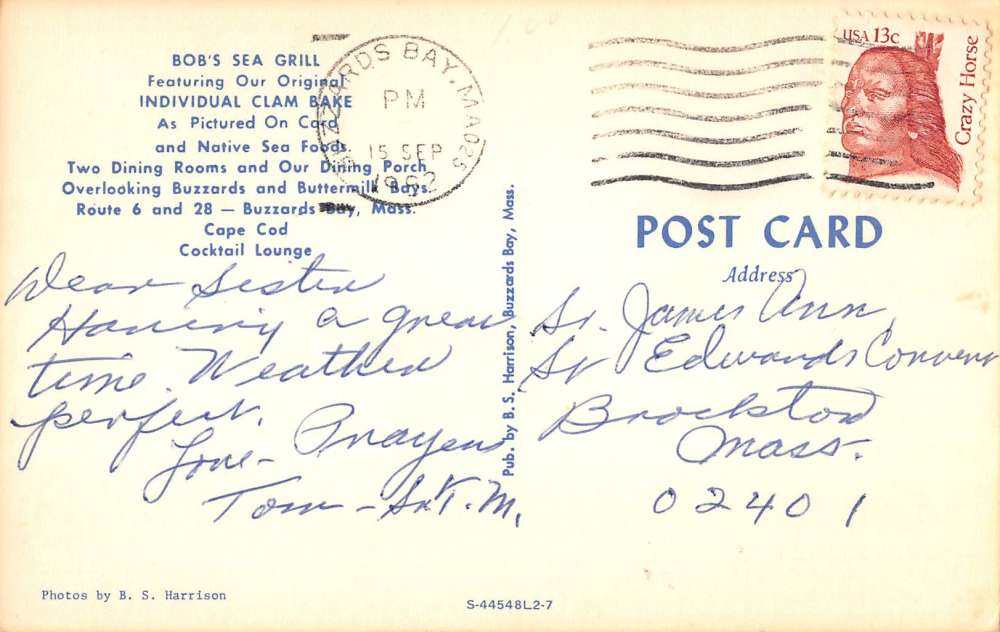 BOB'S SEA GRILL
Featuring Our Original
INDIVIDUAL CLAM BAKE
As Pictured On Card
and Native Sea Foods.
Two Dining Rooms and Our Dining Porch
Overlooking Buzzards and Buttermilk Bays.
Route 6 and 28 — Buzzards Bay, Mass.
Cape Cod
Cocktail Lounge
BUZZARDS BAY, MA 025
PM
15 SEP
1982
USA 13c
Crazy Horse
POST CARD
Address
Dear Sister
Having a great
time. Weather
perfect.
Love - Prayers
Tom - Sr. T. M.
Pub. by B. S. Harrison, Buzzards Bay, Mass.
Sr. James Ann,
St Edwards Convent
Brockton
Mass.
02401
Photos by B. S. Harrison
S-44548L2-7